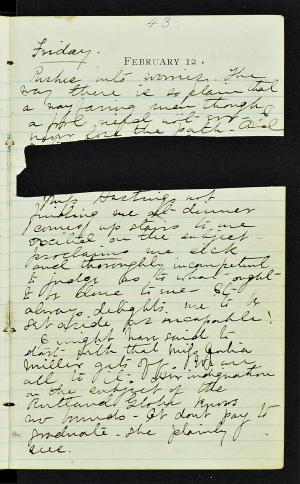 43
Friday.
FEBRUARY 12.
Pushes into worries. The
way there is so plain that
a wayfaring man though
a fool need not err
never lose the path. And
Miss Hastings not
finding me at dinner
comes up stairs to me
excited on the subject
proclaims me sick
and thoroughly incompetent
to judge as to what ought
to be done to me. It
always delights me to be
set aside as incapable!
I might have said to
start with that Miss Julia
Miller gets "76". We are
all to it. Her indignation
on the subject of the
Rutland Globe knows
no bounds. It dont pay to
graduate. She plainly
sees.